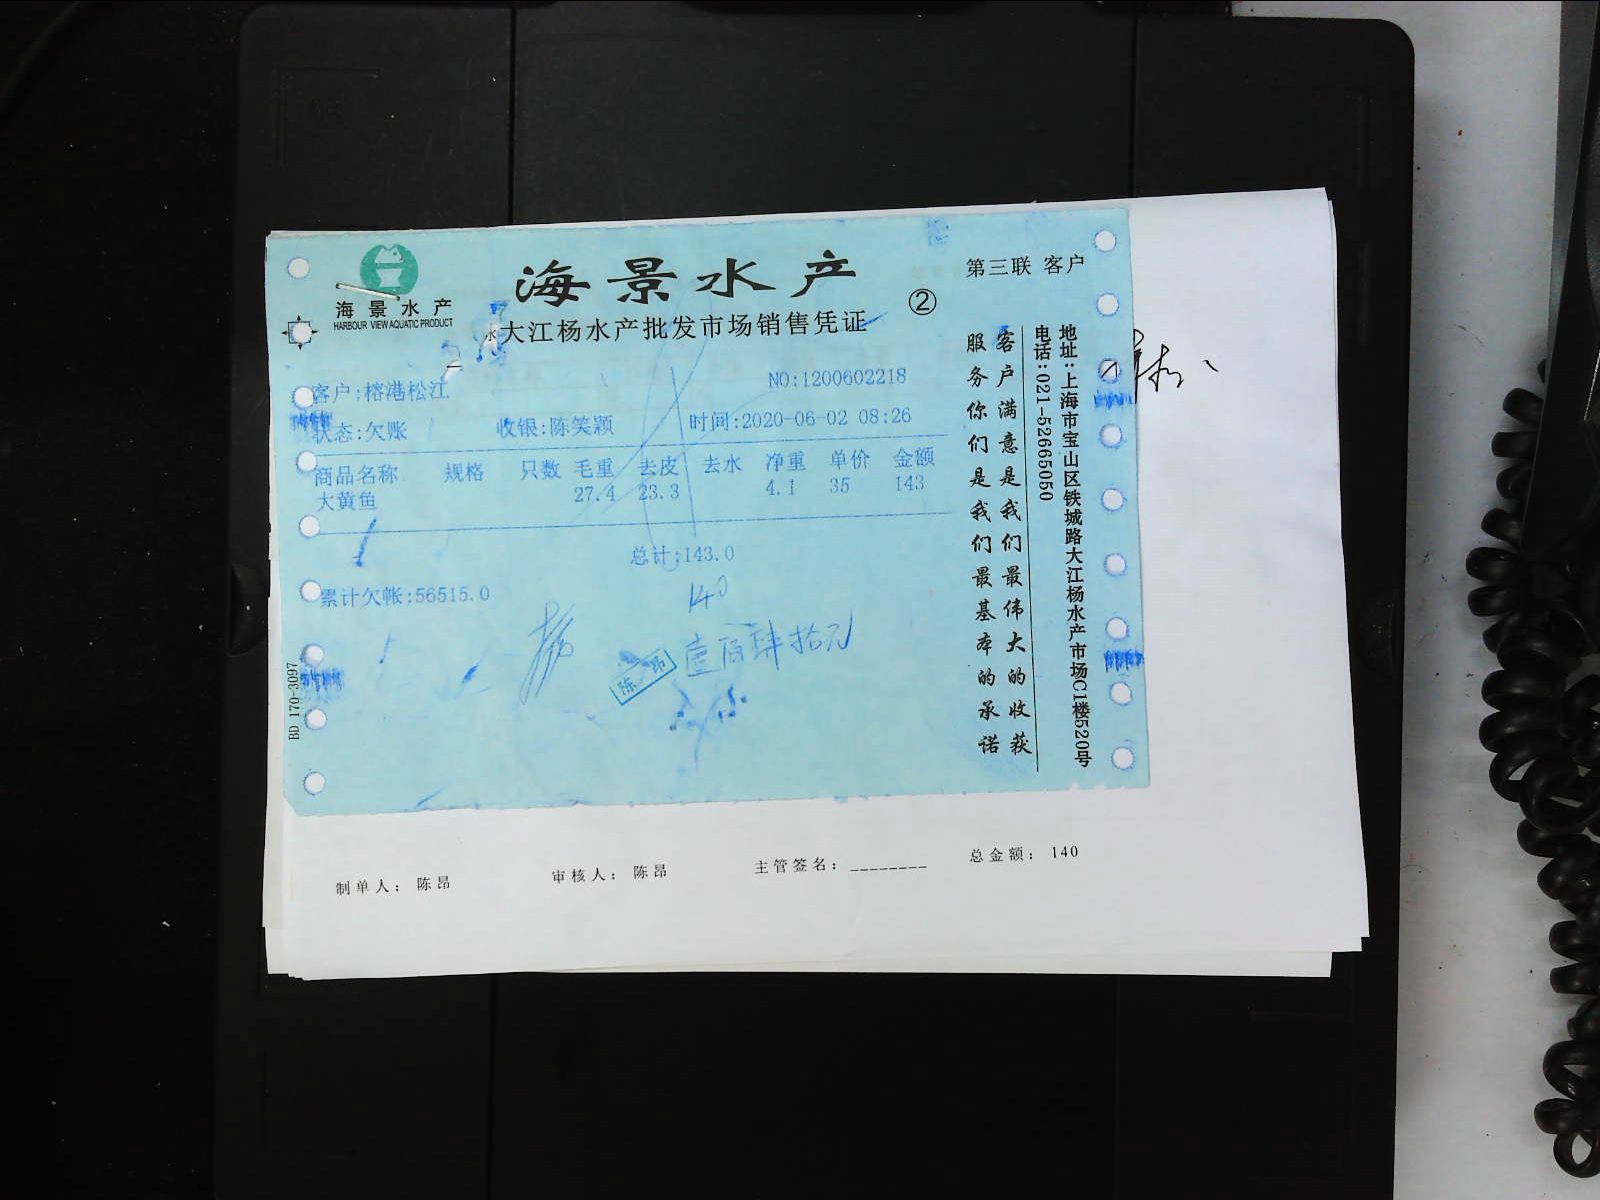 海景水产
HARBOUR VIEW AQUATIC PRODUCT
海景水产
②
第三联 客户
大江杨水产批发市场销售凭证
客户:榕港松江
NO:1200602218
状态:欠账 收银:陈笑颖 时间:2020-06-02 08:26
商品名称 规格 只数 毛重 去皮 去水 净重 单价 金额
大黄鱼 27.4 23.3 4.1 35 143
总计:143.0
累计欠帐:56515.0
140
壹佰肆拾元
陈昂
BD 170-3097
客户满意是我们最伟大的收获
服务你们是我们最基本的承诺
地址:上海市宝山区铁城路大江杨水产市场C1楼520号
电话:021-52665050
制单人: 陈昂 审核人: 陈昂 主管签名:________ 总金额: 140